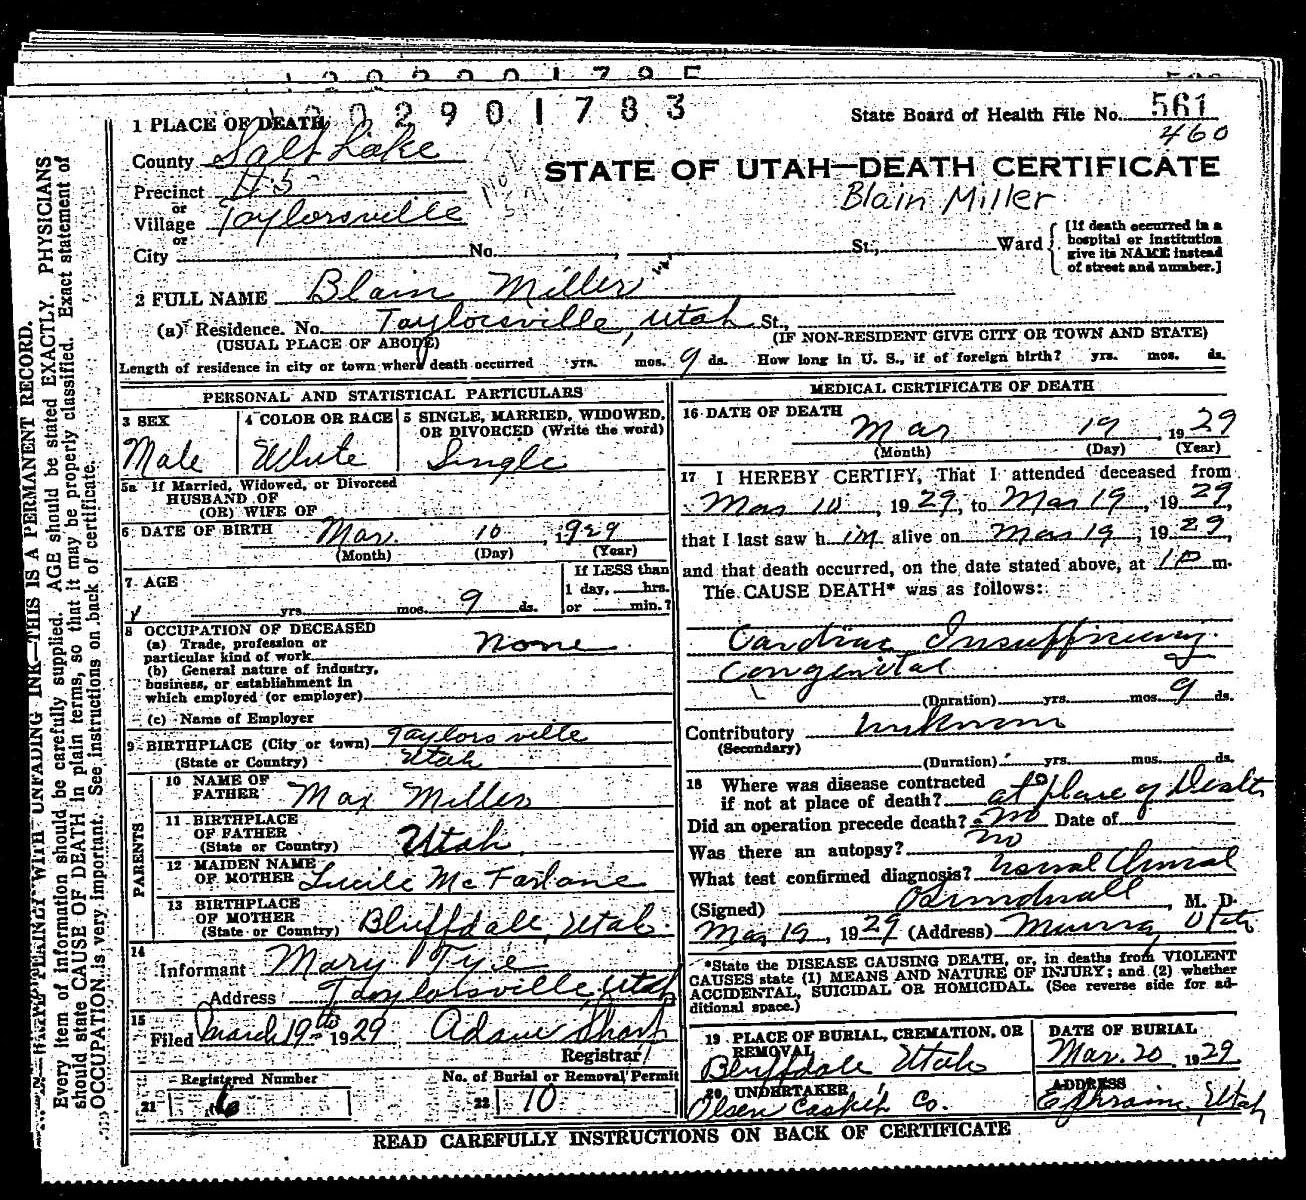 1 2 0 2 9 0 1 7 8 5
1 0 0 2 9 0 1 7 8 3
State Board of Health File No. 561
460
1 PLACE OF DEATH
County Salt Lake
STATE OF UTAH—DEATH CERTIFICATE
Precinct 45
or
Blain Miller
Village Taylorsville
or
City No. , St., Ward
[If death occurred in a hospital or institution give its NAME instead of street and number.]
2 FULL NAME Blain Miller
(a) Residence. No. Taylorsville, Utah St.,
(USUAL PLACE OF ABODE) (IF NON-RESIDENT GIVE CITY OR TOWN AND STATE)
Length of residence in city or town where death occurred yrs. mos. 9 ds. How long in U. S., if of foreign birth? yrs. mos. ds.
PERSONAL AND STATISTICAL PARTICULARS
3 SEX Male
4 COLOR OR RACE White
5 SINGLE, MARRIED, WIDOWED,
OR DIVORCED (Write the word)
Single
5a If Married, Widowed, or Divorced
HUSBAND OF
(OR) WIFE OF
6 DATE OF BIRTH Mar. 10, 1929
(Month) (Day) (Year)
7 AGE
yrs. mos. 9 ds.
If LESS than
1 day, hrs.
or min.?
8 OCCUPATION OF DECEASED
(a) Trade, profession or
particular kind of work None
(b) General nature of industry,
business, or establishment in
which employed (or employer)
(c) Name of Employer
9 BIRTHPLACE (City or town) Taylorsville
(State or Country) Utah
PARENTS
10 NAME OF
FATHER Max Miller
11 BIRTHPLACE
OF FATHER
(State or Country) Utah
12 MAIDEN NAME
OF MOTHER Lucile McFarlane
13 BIRTHPLACE
OF MOTHER
(State or Country) Bluffdale, Utah.
14
Informant Mary Tye
Address Taylorsville, Utah
15
Filed March 19th 1929 Adam Sharp
Registrar
Registered Number
21 6
No. of Burial or Removal Permit
22 10
MEDICAL CERTIFICATE OF DEATH
16 DATE OF DEATH
Mar 19, 1929
(Month) (Day) (Year)
17 I HEREBY CERTIFY, That I attended deceased from
Mar 10, 1929, to Mar 19, 1929,
that I last saw him alive on Mar 19, 1929,
and that death occurred, on the date stated above, at 1 P m.
The CAUSE DEATH* was as follows:
Cardiac Insufficiency
Congenital
(Duration) yrs. mos. 9 ds.
Contributory unknown
(Secondary)
(Duration) yrs. mos. ds.
18 Where was disease contracted
if not at place of death? at place of Death
Did an operation precede death? no Date of
Was there an autopsy? no
What test confirmed diagnosis? Clinical
(Signed) Sundwall, M. D.
Mar 19, 1929 (Address) Murray Utah
*State the DISEASE CAUSING DEATH, or, in deaths from VIOLENT
CAUSES state (1) MEANS AND NATURE OF INJURY; and (2) whether
ACCIDENTAL, SUICIDAL OR HOMICIDAL. (See reverse side for ad-
ditional space.)
19 PLACE OF BURIAL, CREMATION, OR
REMOVAL
Bluffdale Utah
DATE OF BURIAL
Mar. 20 1929
20 UNDERTAKER
Olsen Casket Co.
ADDRESS
Ephraim, Utah
READ CAREFULLY INSTRUCTIONS ON BACK OF CERTIFICATE
PLAINLY WITH UNFADING INK—THIS IS A PERMANENT RECORD.
Every item of information should be carefully supplied. AGE should be stated EXACTLY. PHYSICIANS
should state CAUSE OF DEATH in plain terms, so that it may be properly classified. Exact statement of
OCCUPATION is very important. See instructions on back of certificate.